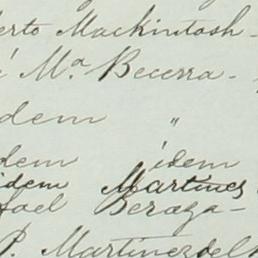 erto Mackintosh -
Mª Becerra -
dem "
dem idem
idem Martines
fael Beraza -
P. Martinez del